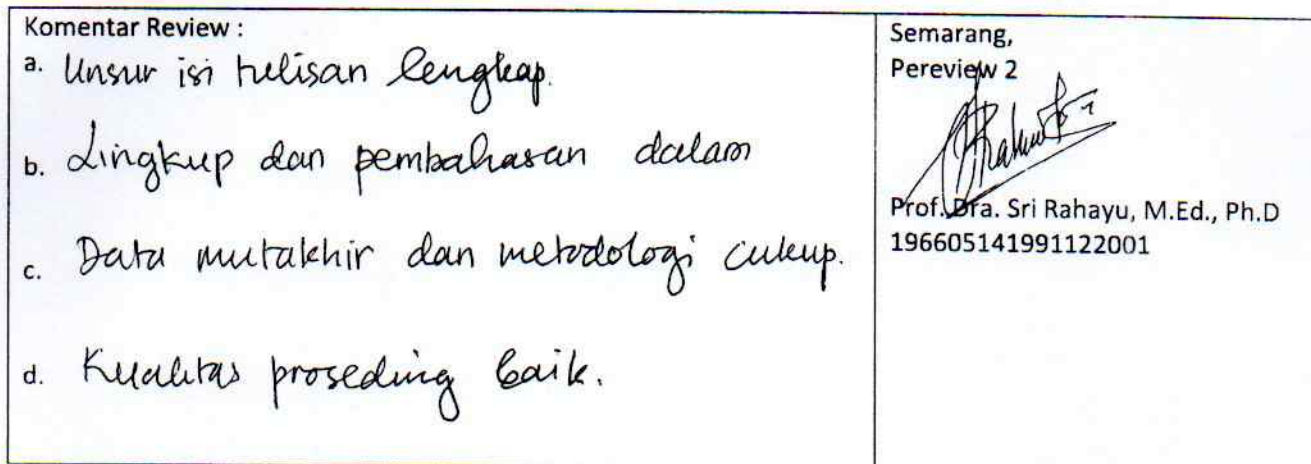 Komentar Review :
a. Unsur isi tulisan lengkap.
b. Lingkup dan pembahasan dalam
c. Data mutakhir dan metodologi cukup.
d. Kualitas proseding baik.
Semarang,
Pereview 2
Prof. Dra. Sri Rahayu, M.Ed., Ph.D
196605141991122001